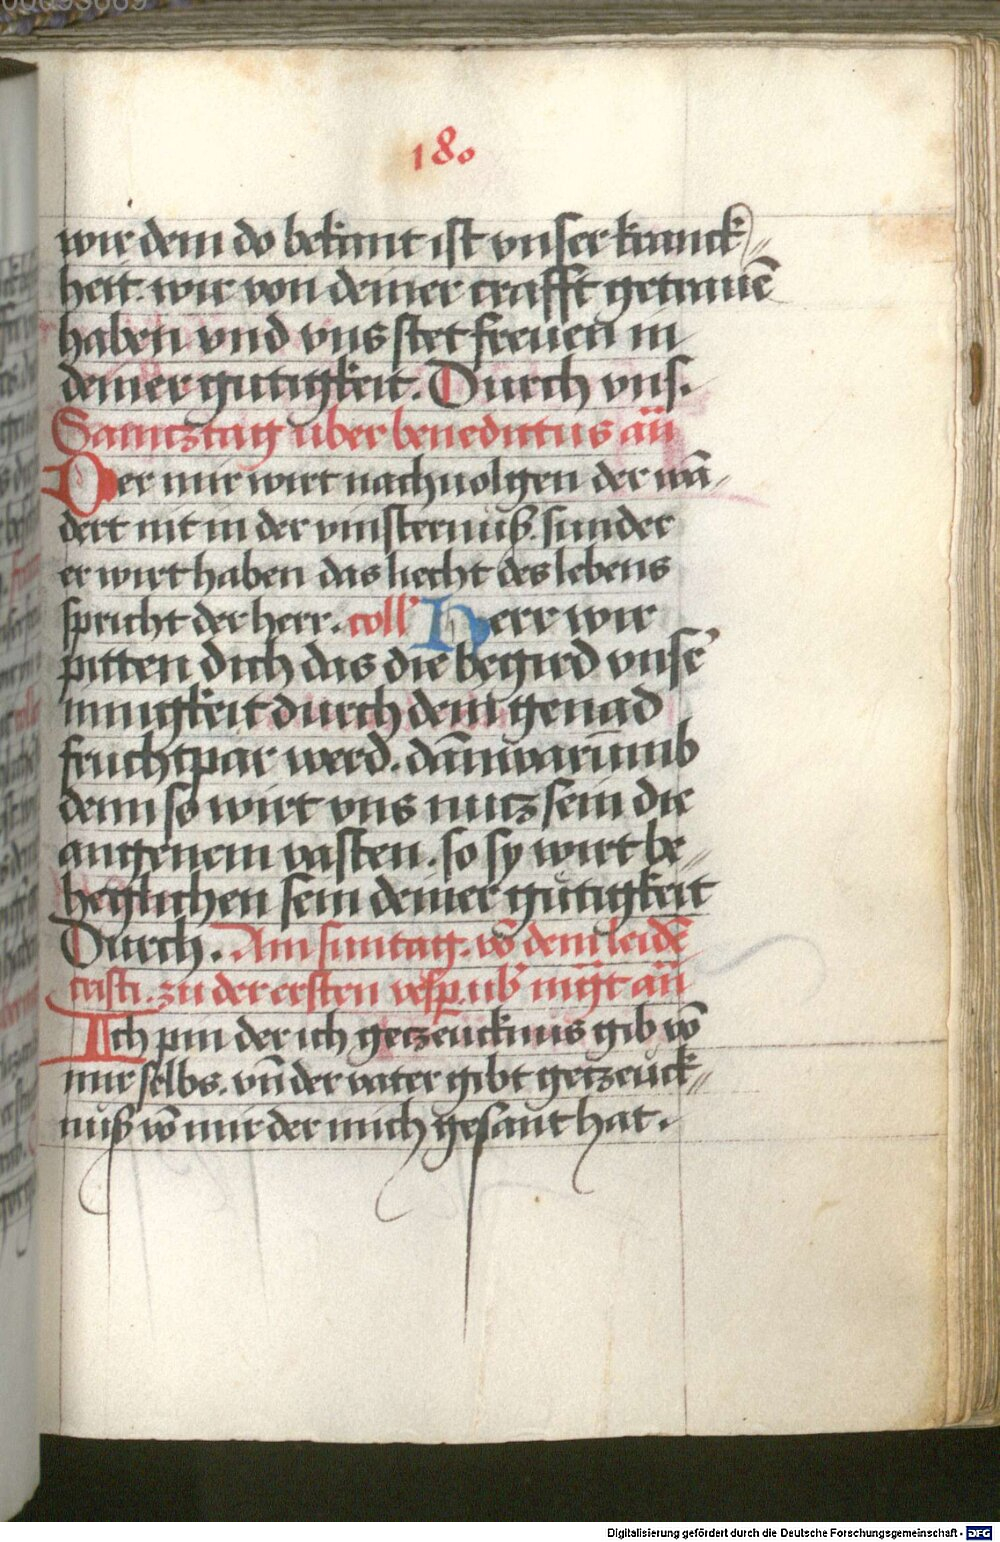 180
wir dem do bekant ist vnser kranck//
heit. wir von deiner crafft getrauē
haben vnd vns stet freuen in
deiner gutigkeit. Durch vns.
Sambztag uber benedictus añ
Der mir wirt nachuolgen der wā/
dert nit in der vinsternuß. sunder
er wirt haben das liecht des lebens
spricht der herr. coll' Herr wir
pitten dich das die begird vnse'
innigkeit durch dein genad
fruchtpar werd. dān warūmb
denn so wirt vns nutz sein die
angenem vasten. so sy wirt be//
heglichen sein deiner gutigkeit
Durch. Am suntag. vō dem leidē
cristi. zu der ersten vesp. ub' mgt añ
Ich pin der ich getzeucknus gib vō
mir selbs. vn̄ der vater gibt getzeuck//
nuß vō mir der mich gesant hat.
Digitalisierung gefördert durch die Deutsche Forschungsgemeinschaft - DFG